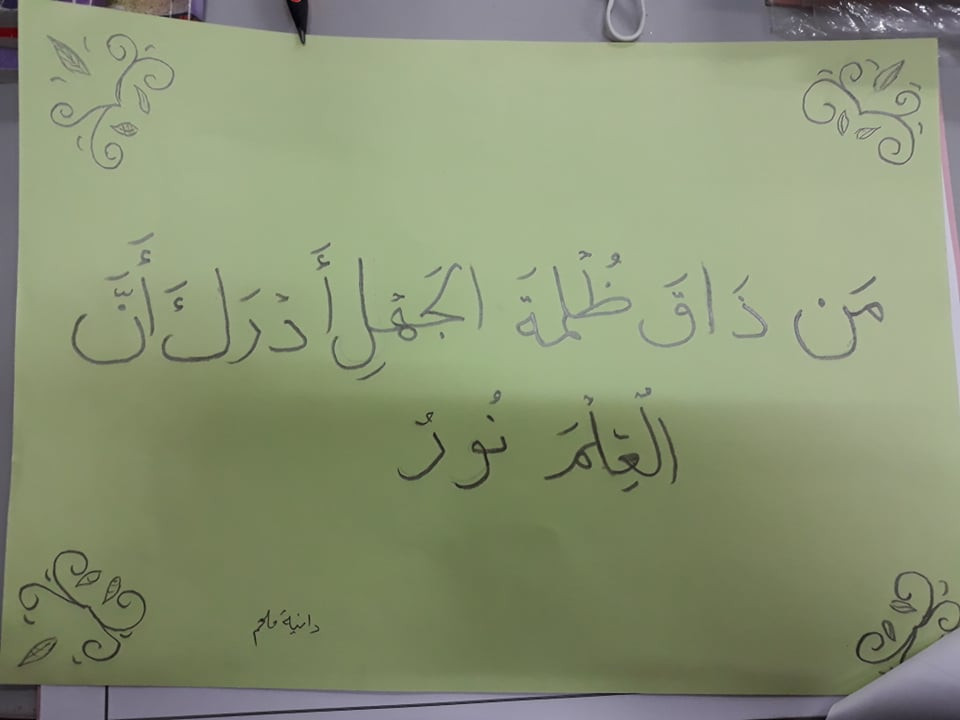 مَن ذَاقَ ظُلْمَةَ الجَهْلِ أَدْرَكَ أَنَّ
الْعِلْمَ نُورُ
دانية ملحم